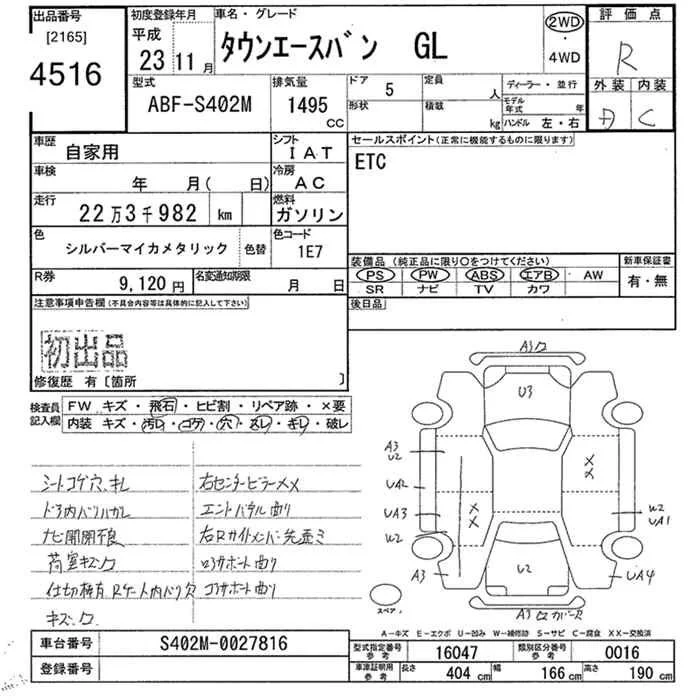 出品番号 初度登録年月 車名・グレード 2WD 評価点
[2165] 平成 タウンエースバン GL ・ R
4516 23年 11月 4WD 外装 内装
型式 排気量 ドア 5 定員 人 ディーラー・並行 C
ABF-S402M 1495 CC 形状 積載 kg モデル年式 年
ハンドル 左・右
車歴 自家用 シフト IAT セールスポイント(正常に機能するものに限ります)
車検 年 月( 日) 冷房 AC ETC
走行 22万3千982 km 燃料 ガソリン
色 シルバーマイカメタリック 色替 色コード 1E7
装備品 (純正品に限り○をつけてください) 新車保証書
R券 9,120円 名変通知期限 月 日 PS PW ABS エアB AW 有・無
SR ナビ TV カワ
注意事項申告欄(不具合内容等は具体的に記入して下さい) 後日品
初出品
修復歴 有〔箇所 〕
検査員記入欄 FW キズ・飛石・ヒビ割・リペア跡・×要
内装 キズ・汚レ・コゲ・穴・スレ・キレ・破レ
シートコゲ穴、キレ 右センターピラーメメ
ドア内バリハガレ エンドパネル曲り
ナビ開閉不良 右Rサイドメンバー先歪ミ
荷室キズ、ワ ロアサポート曲り
仕切棒有 Rゲート内バリ欠 コアサポート曲り
キズ、ワ
A3ワ
U3
A3
U2
UA2
UA3
W2
A3
××
××
W2
UA1
U2
UA4
スペア
A3
A-キズ E-エクボ U-凹み W-補修跡 S-サビ C-腐食 XX-交換済
車台番号 S402M-0027816 型式指定番号 参考 16047 類別区分番号 参考 0016
登録番号 車庫証明用 参考 長さ 404 cm 幅 166 cm 高さ 190 cm